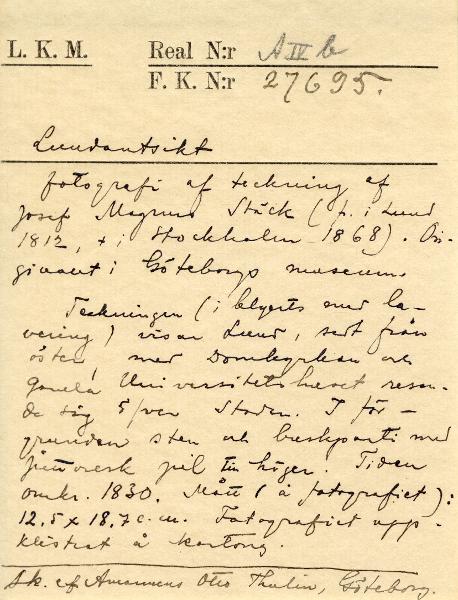 L. K. M. Real N:r A IV b
F. K. N:r 27695.
Lundautsikt
fotografi af teckning af
Josef Magnus Stäck (f. i Lund
1812, + i Stockholm 1868). Ori-
ginalet i Göteborgs museum.
Teckningen (i blyerts med la-
vering) visar Lund, sedt från
öster, med Domkyrkan och
gamla Universitetshuset resan-
de sig öfver Staden. I för-
grunden sten och buskparti med
pittoresk pil till höger. Tiden
omkr. 1830. Mått (å fotografiet):
12,5 x 18,7 c.m. Fotografiet upp-
klistrat å kartong.
Sk. af Amanuens Otto Thulin, Göteborg.